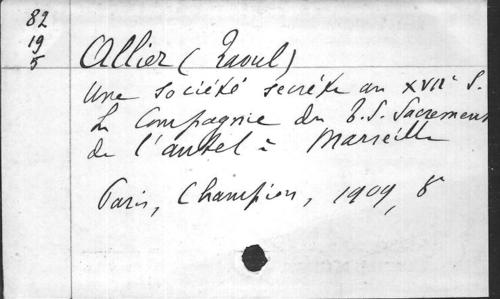 82
19
5
Allier (Raoul)
Une société secrète au XVIIe S.
La Compagnie du T.S. Sacrement
de l'autel à Marseille
Paris, Champion, 1909, 8°